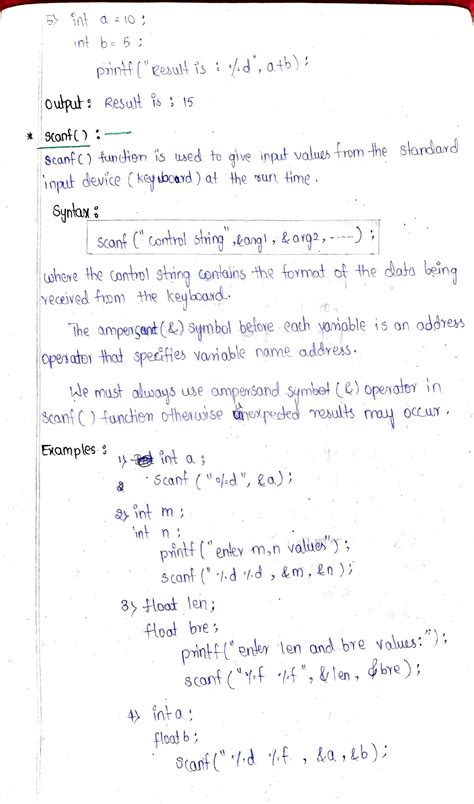 5) int a = 10 ;
int b = 5 ;
printf ("Result is : %d", a+b) ;
Output : Result is : 15
* scanf( ) :
scanf( ) function is used to give input values from the standard
input device (keyboard) at the run time .
Syntax :
scanf ("control string", &arg1, &arg2, -----) ;
where the control string contains the format of the data being
received from the keyboard.
The ampersant (&) symbol before each variable is an address
operator that specifies variable name address.
We must always use ampersand symbol (&) operator in
scanf ( ) function otherwise unexpected results may occur .
Examples :
1) int a ;
scanf ("%d", &a) ;
2) int m ;
int n ;
printf ("enter m,n values") ;
scanf (" %d %d , &m, &n ) ;
3) float len ;
float bre ;
printf ("enter len and bre values:") ;
scanf ("%f %f", &len, &bre) ;
4) int a ;
float b ;
scanf (" %d %f , &a, &b) ;